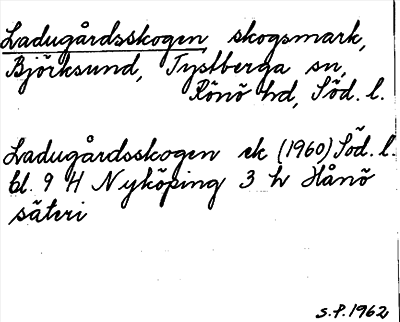 Ladugårdsskogen, skogsmark,
Björksund, Tystberga sn,
Rönö hd, Söd. l.
Ladugårdsskogen ek (1960) Söd. l.
bl. 9 H Nyköping 3 h Hånö
säteri
S.P. 1962